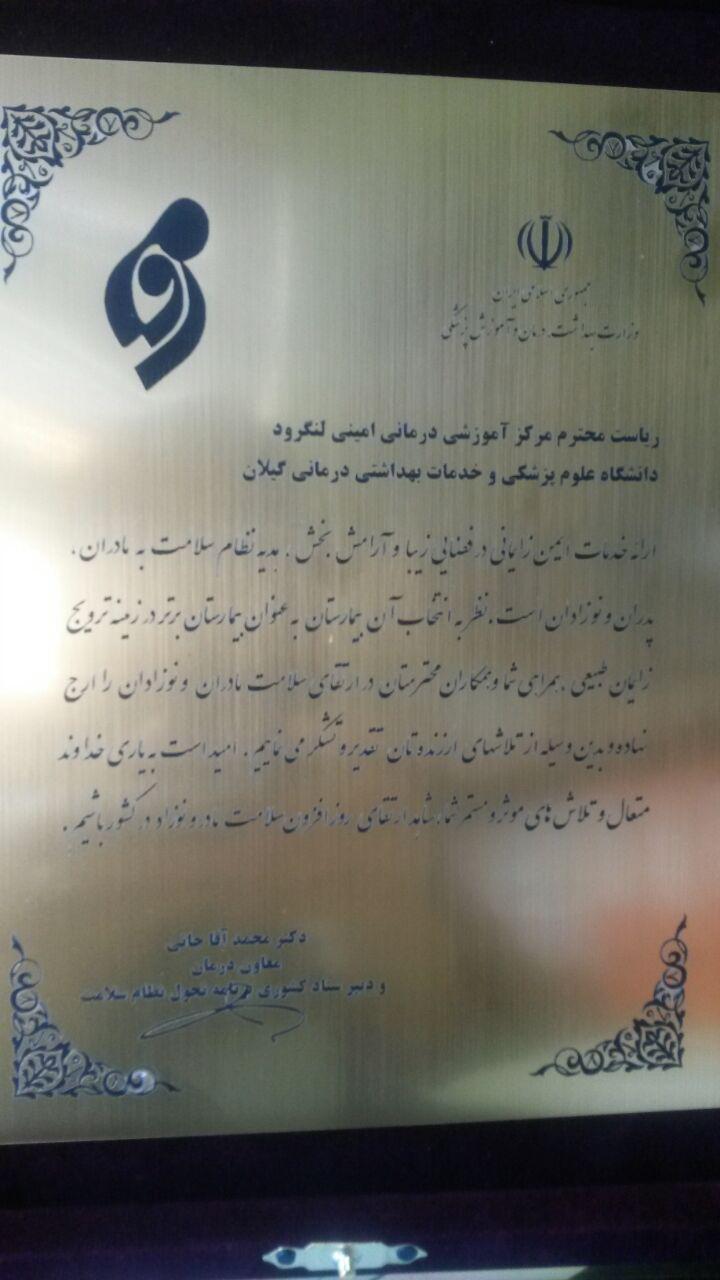 جمهوری اسلامی ایران
وزارت بهداشت، درمان و آموزش پزشکی
ریاست محترم مرکز آموزشی درمانی امینی لنگرود
دانشگاه علوم پزشکی و خدمات بهداشتی درمانی گیلان
ارائه خدمات ایمن زایمانی در فضایی زیبا و آرامش بخش، هدیه نظام سلامت به مادران،
پدران و نوزادان است. نظر به انتخاب آن بیمارستان به عنوان بیمارستان برتر در زمینه ترویج
زایمان طبیعی، همراهی شما و همکاران محترمتان در ارتقای سلامت مادران و نوزادان را ارج
نهاده و بدین وسیله از تلاشهای ارزنده تان تقدیر و تشکر می نماییم. امید است به یاری خداوند
متعال و تلاش های موثر و مستمر شما، شاهد ارتقای روز افزون سلامت مادر و نوزاد در کشور باشیم.
دکتر محمد آقا جانی
معاون درمان
و دبیر ستاد کشوری برنامه تحول نظام سلامت